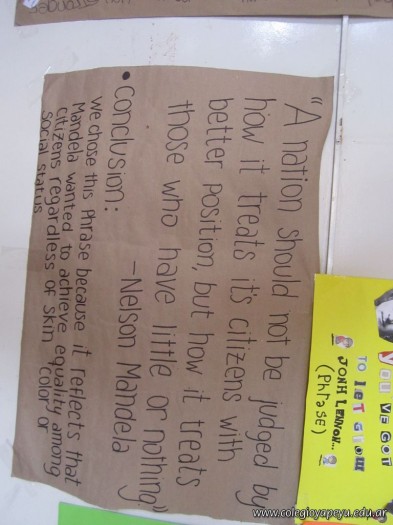 "A nation should not be judged by
how it treats it's citizens with
better position, but how it treats
those who have little or nothing"
-Nelson Mandela
• Conclusion:
We chose this phrase because it reflects that
Mandela wanted to achieve equality among
citizens regardless of skin color or
social status
YOU'VE GOT
TO LET GROW
JONH LENNON...
(Phrase)
www.colegioyapeyu.edu.ar